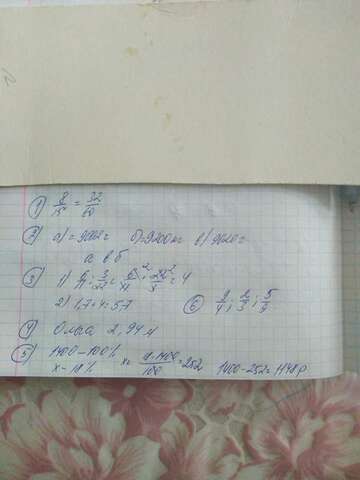 ① 8/15 = 32/60
② а) = 9002 г б) = 9200 кг в) 9020 г
а в б
③ 1) 6/11 : 3/22 = 6/11 · 22/3 = 4
2) 1,7 = 4 : 5,7
⑥ 2/4 ; 2/3 ; 5/9
④ Ольга 2,94 м
⑤ 1400 – 100%
x – 18% x = 18·1400/100 = 252 1400 – 252 = 1148 р